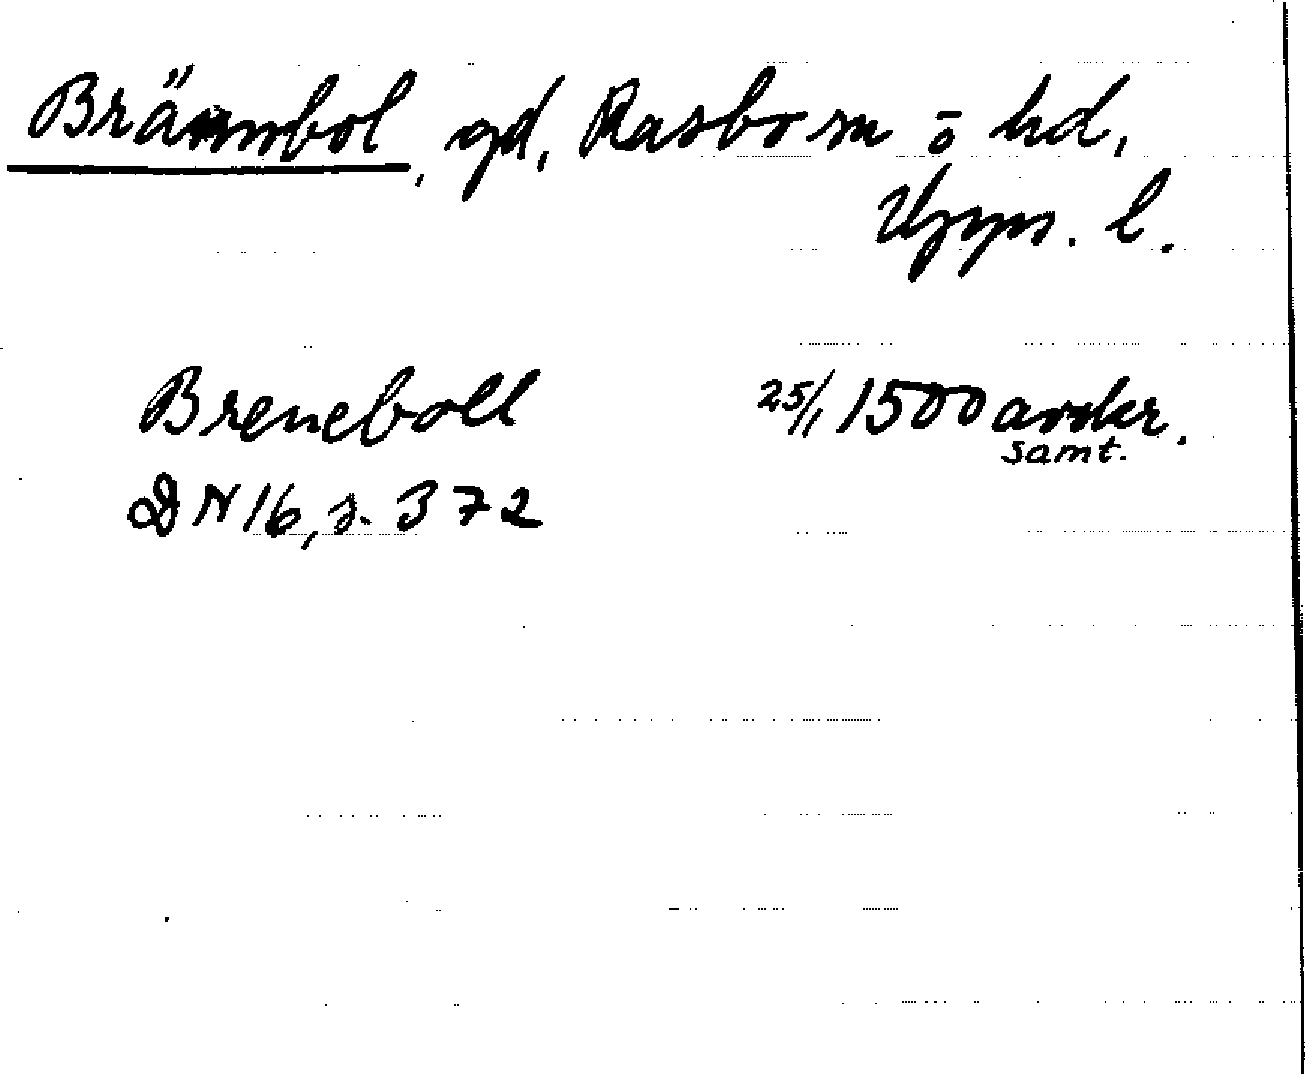 Brännbol, gd, Rasbo sn o hd,
Upps. l.
Breneboll 25/1 1500 avskr.
samt.
DN 16, s. 372